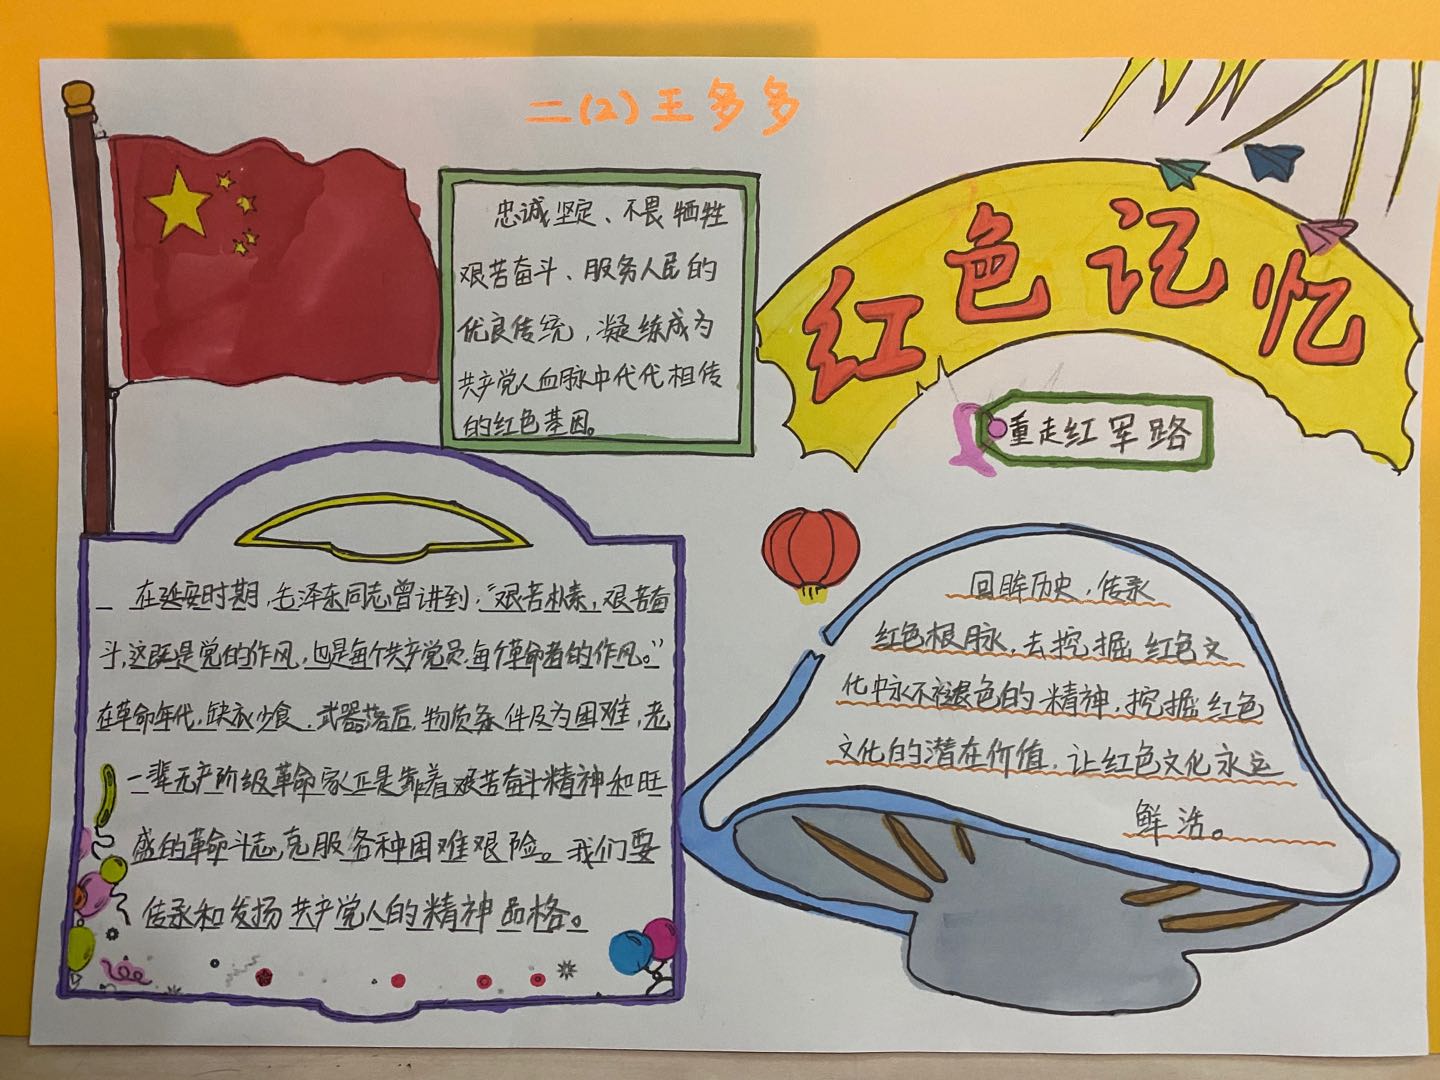 二(2)王多多
忠诚坚定、不畏牺牲
艰苦奋斗、服务人民的
优良传统，凝练成为
共产党人血脉中代代相传
的红色基因。
红色记忆
重走红军路
在延安时期，毛泽东同志曾讲到："艰苦朴素，艰苦奋
斗，这既是党的作风，也是每个共产党员，每个革命者的作风。"
在革命年代，缺衣少食、武器落后，物质条件及为困难，老
一辈无产阶级革命家正是靠着艰苦奋斗精神和旺
盛的革命斗志，克服各种困难艰险。我们要
传承和发扬共产党人的精神品格。
回眸历史，传承
红色根脉，去挖掘红色文
化中永不褪色的精神，挖掘红色
文化的潜在价值，让红色文化永远
鲜活。